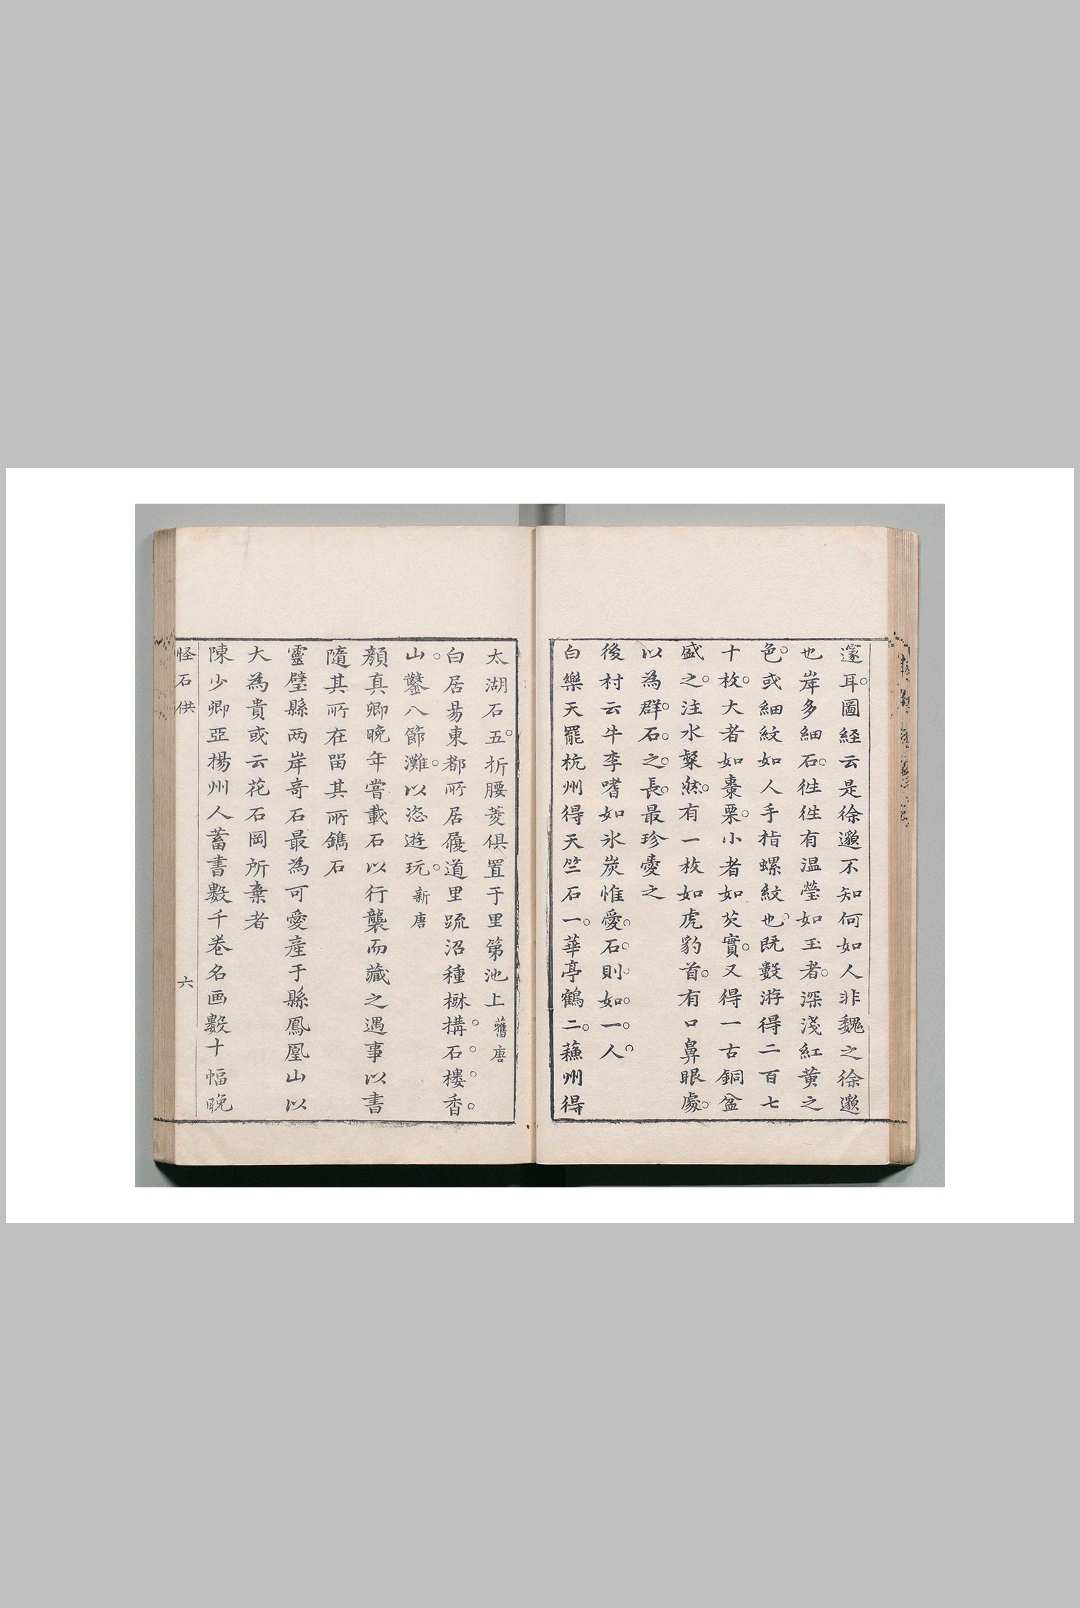 邃耳圖経云是徐邈不知何如人非魏之徐邈
也岸多細石徃徃有温瑩如玉者深淺紅黄之
色或細紋如人手指螺紋也既數游得二百七
十枚大者如棗栗小者如芡實又得一古銅盆
盛之注水粲然有一枚如虎豹首有口鼻眼處
以為群石之長最珍愛之
後村云牛李嗜如氷炭惟愛石則如一人
白樂天罷杭州得天竺石一華亭鶴二蘓州得
太湖石五折腰菱俱置于里第池上舊唐
白居昜東都所居履道里疏沼種樹構石樓香
山鑿八節灘以恣遊玩新唐
顔真卿晩年嘗載石以行襲而藏之遇事以書
隨其所在留其所鐫石
靈璧縣两岸竒石最為可愛産于縣鳳凰山以
大為貴或云花石岡所棄者
陳少卿亞揚州人蓄書數千卷名画數十幅晩
怪石供
六